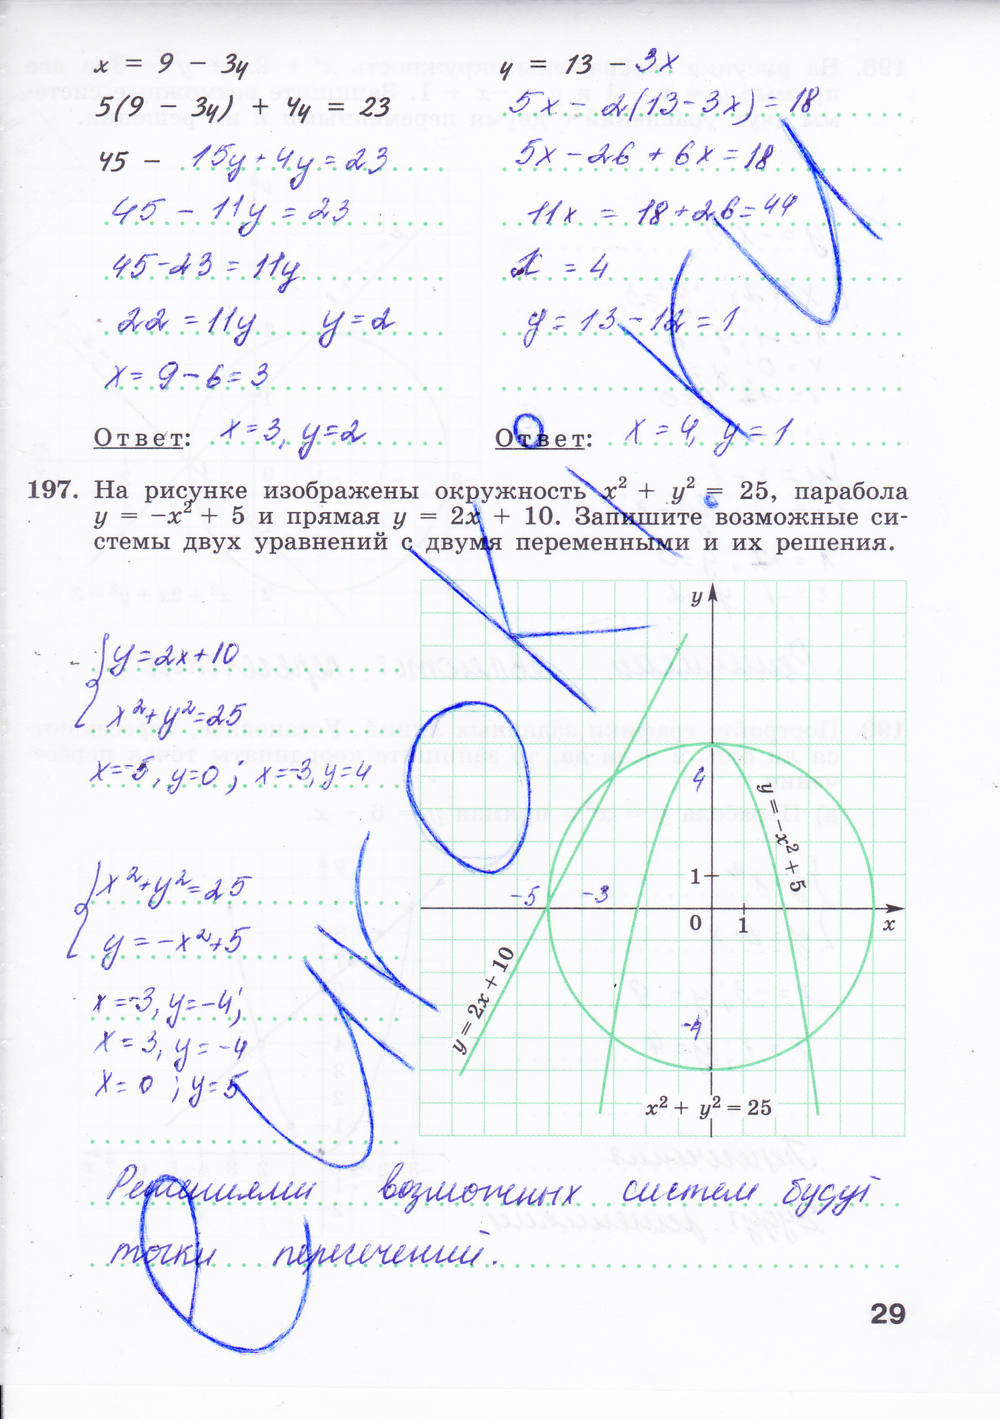 x = 9 − 3y
5(9 − 3y) + 4y = 23
45 − 15y + 4y = 23
45 − 11y = 23
45 − 23 = 11y
22 = 11y y = 2
x = 9 − 6 = 3
Ответ: x = 3, y = 2
y = 13 − 3x
5x − 2(13 − 3x) = 18
5x − 26 + 6x = 18
11x = 18 + 26 = 44
x = 4
y = 13 − 12 = 1
Ответ: x = 4, y = 1
197. На рисунке изображены окружность x² + y² = 25, парабола
y = −x² + 5 и прямая y = 2x + 10. Запишите возможные си-
стемы двух уравнений с двумя переменными и их решения.
y = 2x + 10
x² + y² = 25
x = −5, y = 0; x = −3, y = 4
x² + y² = 25
y = −x² + 5
x = −3, y = −4;
x = 3, y = −4
x = 0; y = 5
y
4
y = −x² + 5
1
−5 −3 0 1 x
y = 2x + 10
−4
x² + y² = 25
Решениями возможных систем будут
точки пересечений.
29